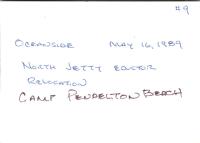 #9
OCEANSIDE MAY 16, 1989
NORTH JETTY EDITOR
RELOCATION
CAMP PENDELTON BEACH